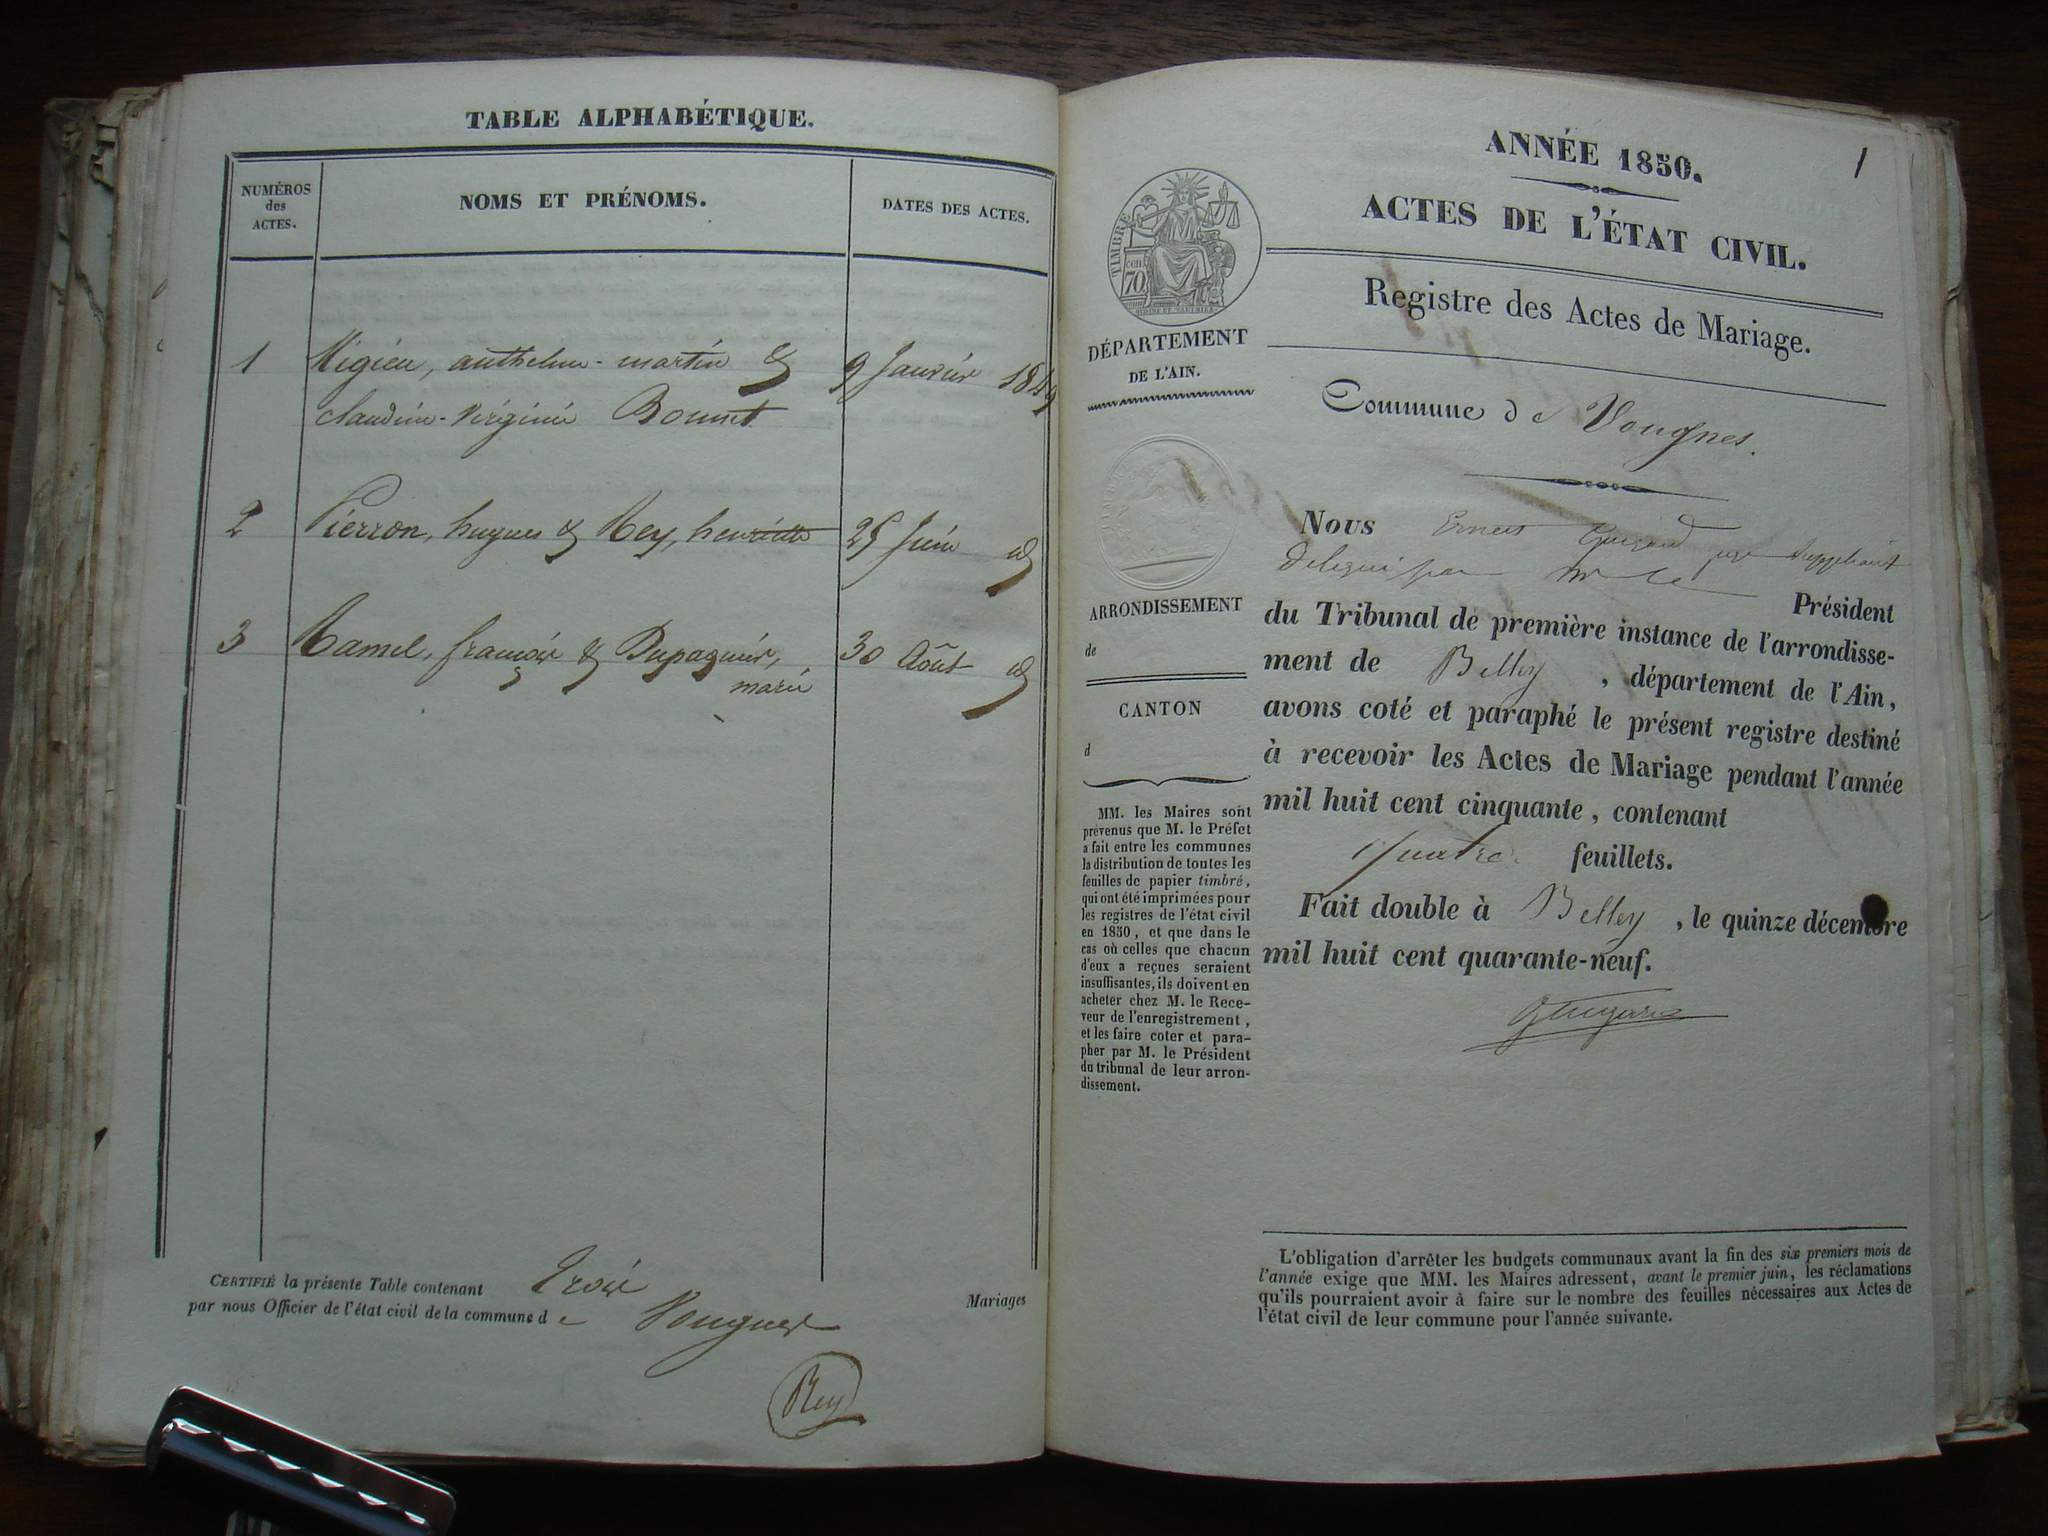 TABLE ALPHABÉTIQUE.
NUMÉROS
des
ACTES.
NOMS ET PRÉNOMS.
DATES DES ACTES.
1 Migieu, anthelme-martin & 9 Janvier 1849
claudine-Virginie Bonnet
2 Pierron, hugues & Rey, henriette 25 Juin id
3 Ramel, françois & Dupasquier, 30 Août id
marie
CERTIFIÉ la présente Table contenant trois Mariages
par nous Officier de l'état civil de la commune de Vongnes
Rey
1
ANNÉE 1850.
ACTES DE L'ÉTAT CIVIL.
Registre des Actes de Mariage.
TIMBRE
cen.
70.
DÉPARTEMENT
DE L'AIN.
Commune de Vongnes.
ARRONDISSEMENT
de
CANTON
d
MM. les Maires sont
prévenus que M. le Préfet
a fait entre les communes
la distribution de toutes les
feuilles de papier timbré,
qui ont été imprimées pour
les registres de l'état civil
en 1850, et que dans le
cas où celles que chacun
d'eux a reçues seraient
insuffisantes, ils doivent en
acheter chez M. le Rece-
veur de l'enregistrement,
et les faire coter et para-
pher par M. le Président
du tribunal de leur arron-
dissement.
Nous Ernest juge suppléant
Délégué par Mr le Président
du Tribunal de première instance de l'arrondisse-
ment de Belley, département de l'Ain,
avons coté et paraphé le présent registre destiné
à recevoir les Actes de Mariage pendant l'année
mil huit cent cinquante, contenant
quatre feuillets.
Fait double à Belley, le quinze décembre
mil huit cent quarante-neuf.
L'obligation d'arrêter les budgets communaux avant la fin des six premiers mois de
l'année exige que MM. les Maires adressent, avant le premier juin, les réclamations
qu'ils pourraient avoir à faire sur le nombre des feuilles nécessaires aux Actes de
l'état civil de leur commune pour l'année suivante.